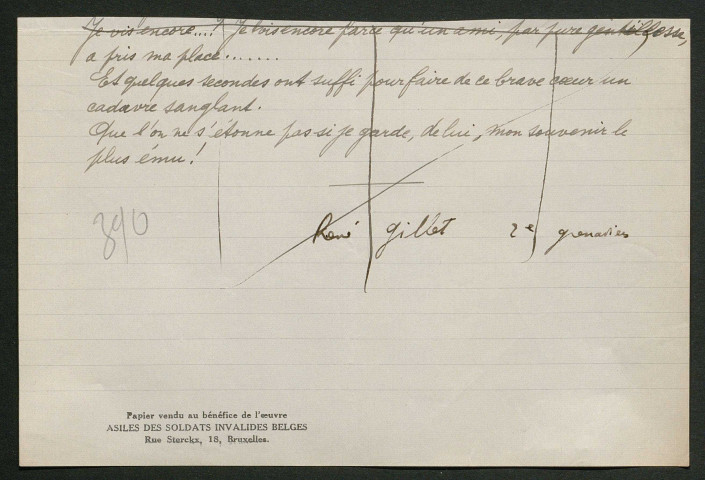 Je vis encore...! Je vis encore parce qu'un ami, par pure gentillesse,
a pris ma place.......
Et quelques secondes ont suffi pour faire de ce brave cœur un
cadavre sanglant.
Que l'on ne s'étonne pas si je garde, de lui, mon souvenir le
plus ému!
390
René Gillet 2e grenadiers
Papier vendu au bénéfice de l'œuvre
ASILES DES SOLDATS INVALIDES BELGES
Rue Sterckx, 18, Bruxelles.